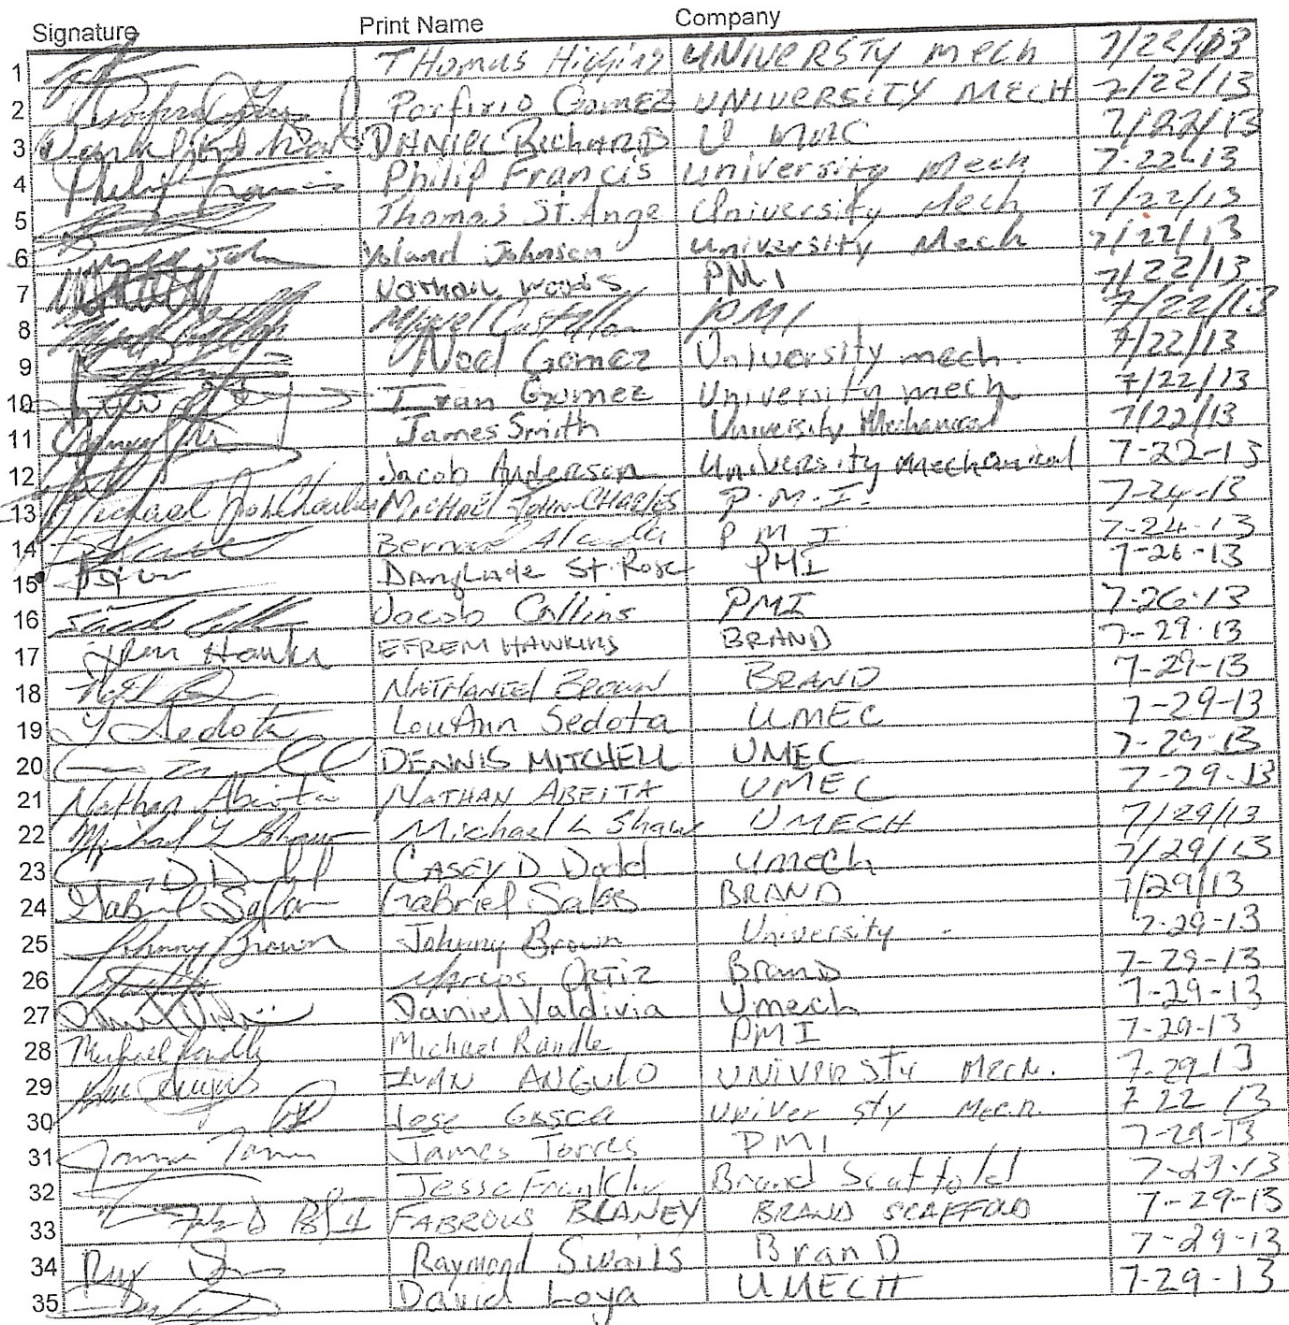 Signature Print Name Company
1 Thomas Higgins UNIVERSTY mech 7/22/13
2 Porfirio Gomez UNIVERSITY MECH 7/22/13
3 DANIEL RICHARD U MEC 7/22/13
4 Philip Francis Philip Francis university Mech 7-22-13
5 Thomas St. Ange University Mech 7/22/13
6 Yoland Johnson university Mech 7/22/13
7 Nathan Woods PMI 7/22/13
8 Miguel PMI 7/22/13
9 Noel Gomez University mech. 7/22/13
10 Ivan Gomez University mech 7/22/13
11 James Smith University Mechanical 7/22/13
12 Jacob Anderson University Mechanical 7-22-13
13 Michael John Charles Michael John CHARLES P.M.I. 7-24-13
14 PMI 7-24-13
15 Danglade St. Rose PMI 7-26-13
16 Jacob Collins PMI 7-26-13
17 EFREM HAWKINS BRAND 7-29-13
18 NATHANIEL BROWN BRAND 7-29-13
19 Sedota LouAnn Sedota UMEC 7-29-13
20 DENNIS MITCHELL UMEC 7-29-13
21 Nathan Abeita NATHAN ABEITA UMEC 7-29-13
22 Michael L Shaw Michael L Shaw UMECH 7/29/13
23 CASEY D Dodd Umech 7/29/13
24 Gabriel Salas BRAND 7/29/13
25 Johnny Brown Johnny Brown University 7-29-13
26 Marcos Ortiz BranD 7-29-13
27 Daniel Valdivia Umech 7-29-13
28 Michael Randle Michael Randle PMI 7-29-13
29 IVAN ANGULO UNIVERSTY Mech. 7-29-13
30 Jose Gasca Universty Mech. 7 22 13
31 James Torres PMI 7-29-13
32 Jesse Franklin Brand Scaffold 7-29-13
33 FABROUS BLANEY BRAND SCAFFOLD 7-29-13
34 Raymond Swails BranD 7-29-13
35 David Loya UMECH 7-29-13